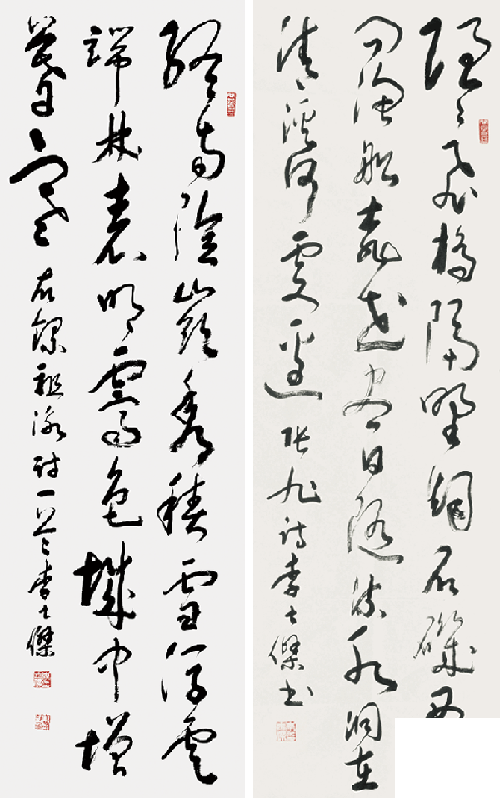 隱々飛橋隔野煙石磯西
問漁船桃花盡日隨流水洞在
清溪何處邊 張旭詩李士傑書
終南陰嶺秀積雪浮雲
端林表明霽色城中增
暮寒 右錄祖詠詩一首李士傑